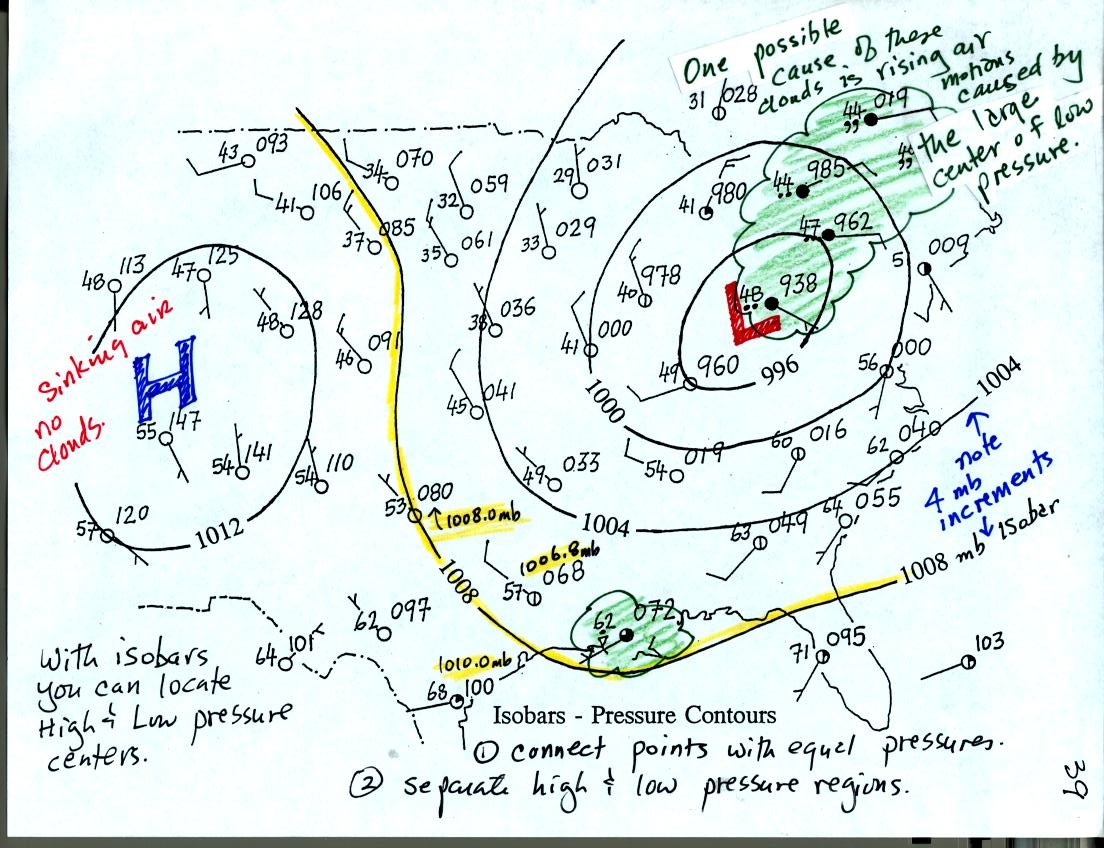 One possible
cause of these
clouds is rising air
motions
caused by
the large
center of low
pressure.
31 028
44 019
43 093
34 070
29 031
44 985
41 106
32 059
41 980
37 085
35 061
33 029
47 962
009
48 113
47 125
48 128
40 978
48 938
38 036
Sinking air
no
clouds.
H
L
46 091
41 000
49 960
996
56 000
1004
1000
45 041
55 147
54 141
54 110
49 033
54 019
60 016
62 040
note
4 mb
increments
53 080
1008.0mb
57 120
1012
1004
63 049
64 055
1008 mb Isobar
1006.8mb
57 068
1008
62 072
62 097
64 101
1010.0mb
68 100
71 095
103
With isobars
you can locate
High & Low pressure
centers.
Isobars - Pressure Contours
① connect points with equal pressures.
② separate high & low pressure regions.
39